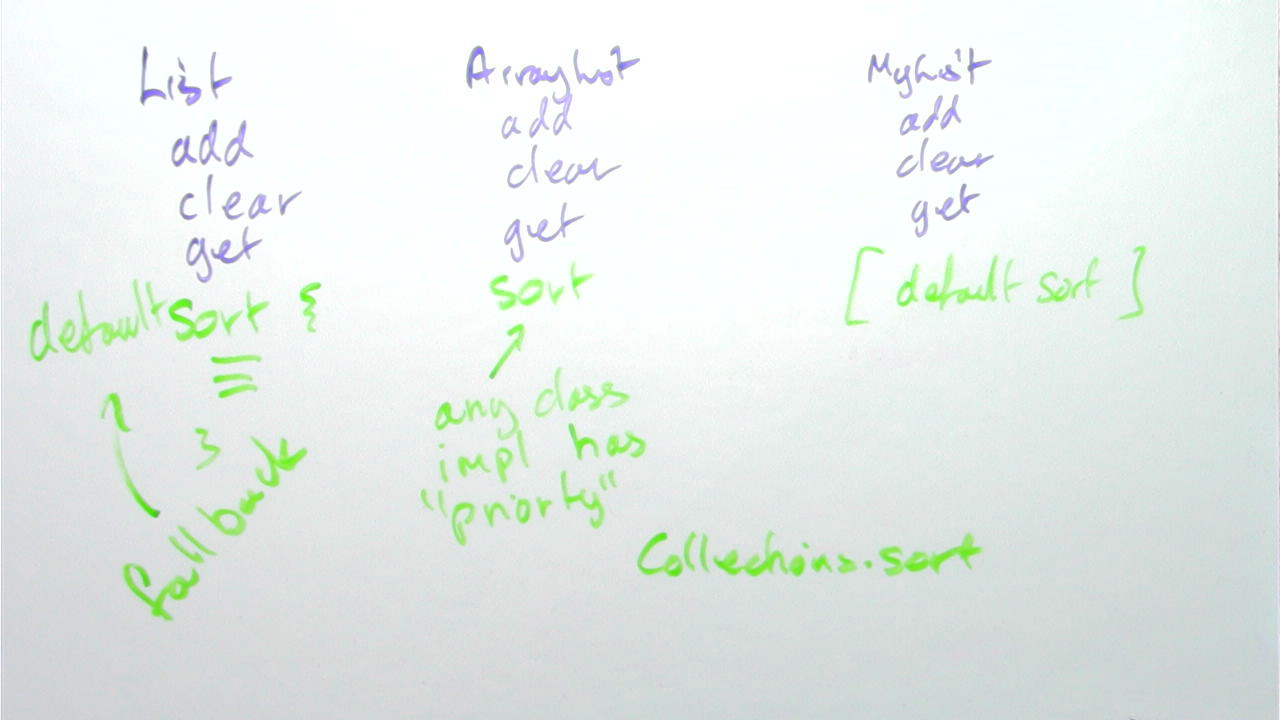 List
add
clear
get
default sort {
}
fall back
ArrayList
add
clear
get
sort
any class
impl has
"priorty"
MyList
add
clear
get
[ default sort ]
Collections.sort